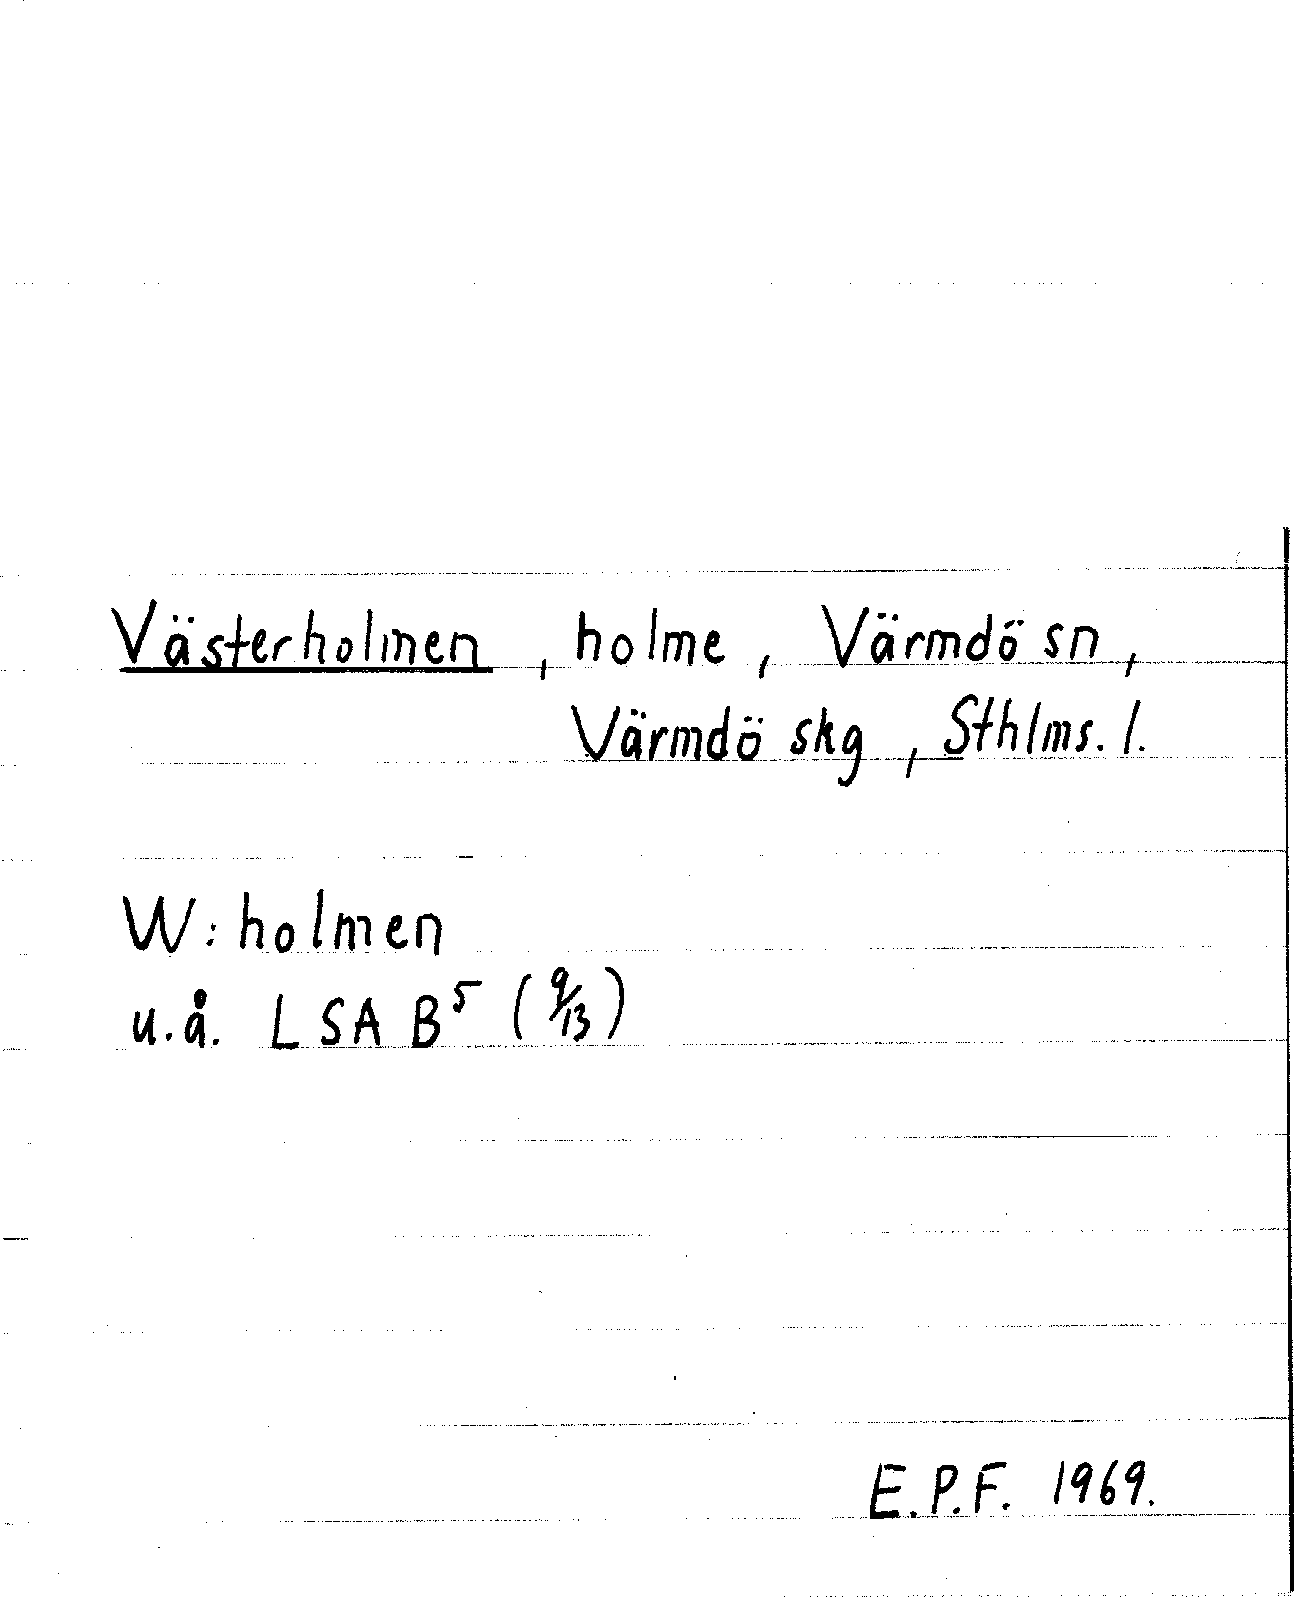 Västerholmen, holme, Värmdö sn,
Värmdö skg, Sthlms. l.
W: holmen
u.å. LSA B⁵ (9/13)
E.P.F. 1969.